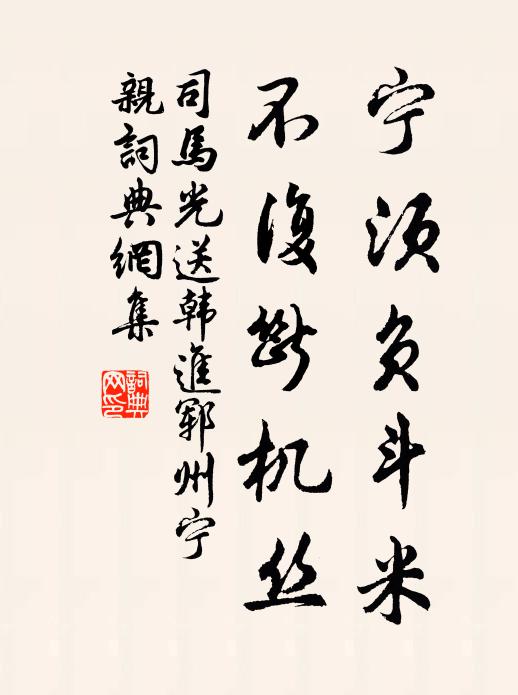 宁须负斗米
不复断机丝
司馬光送韩進郓州宁
親詞典網集
詞典
网印